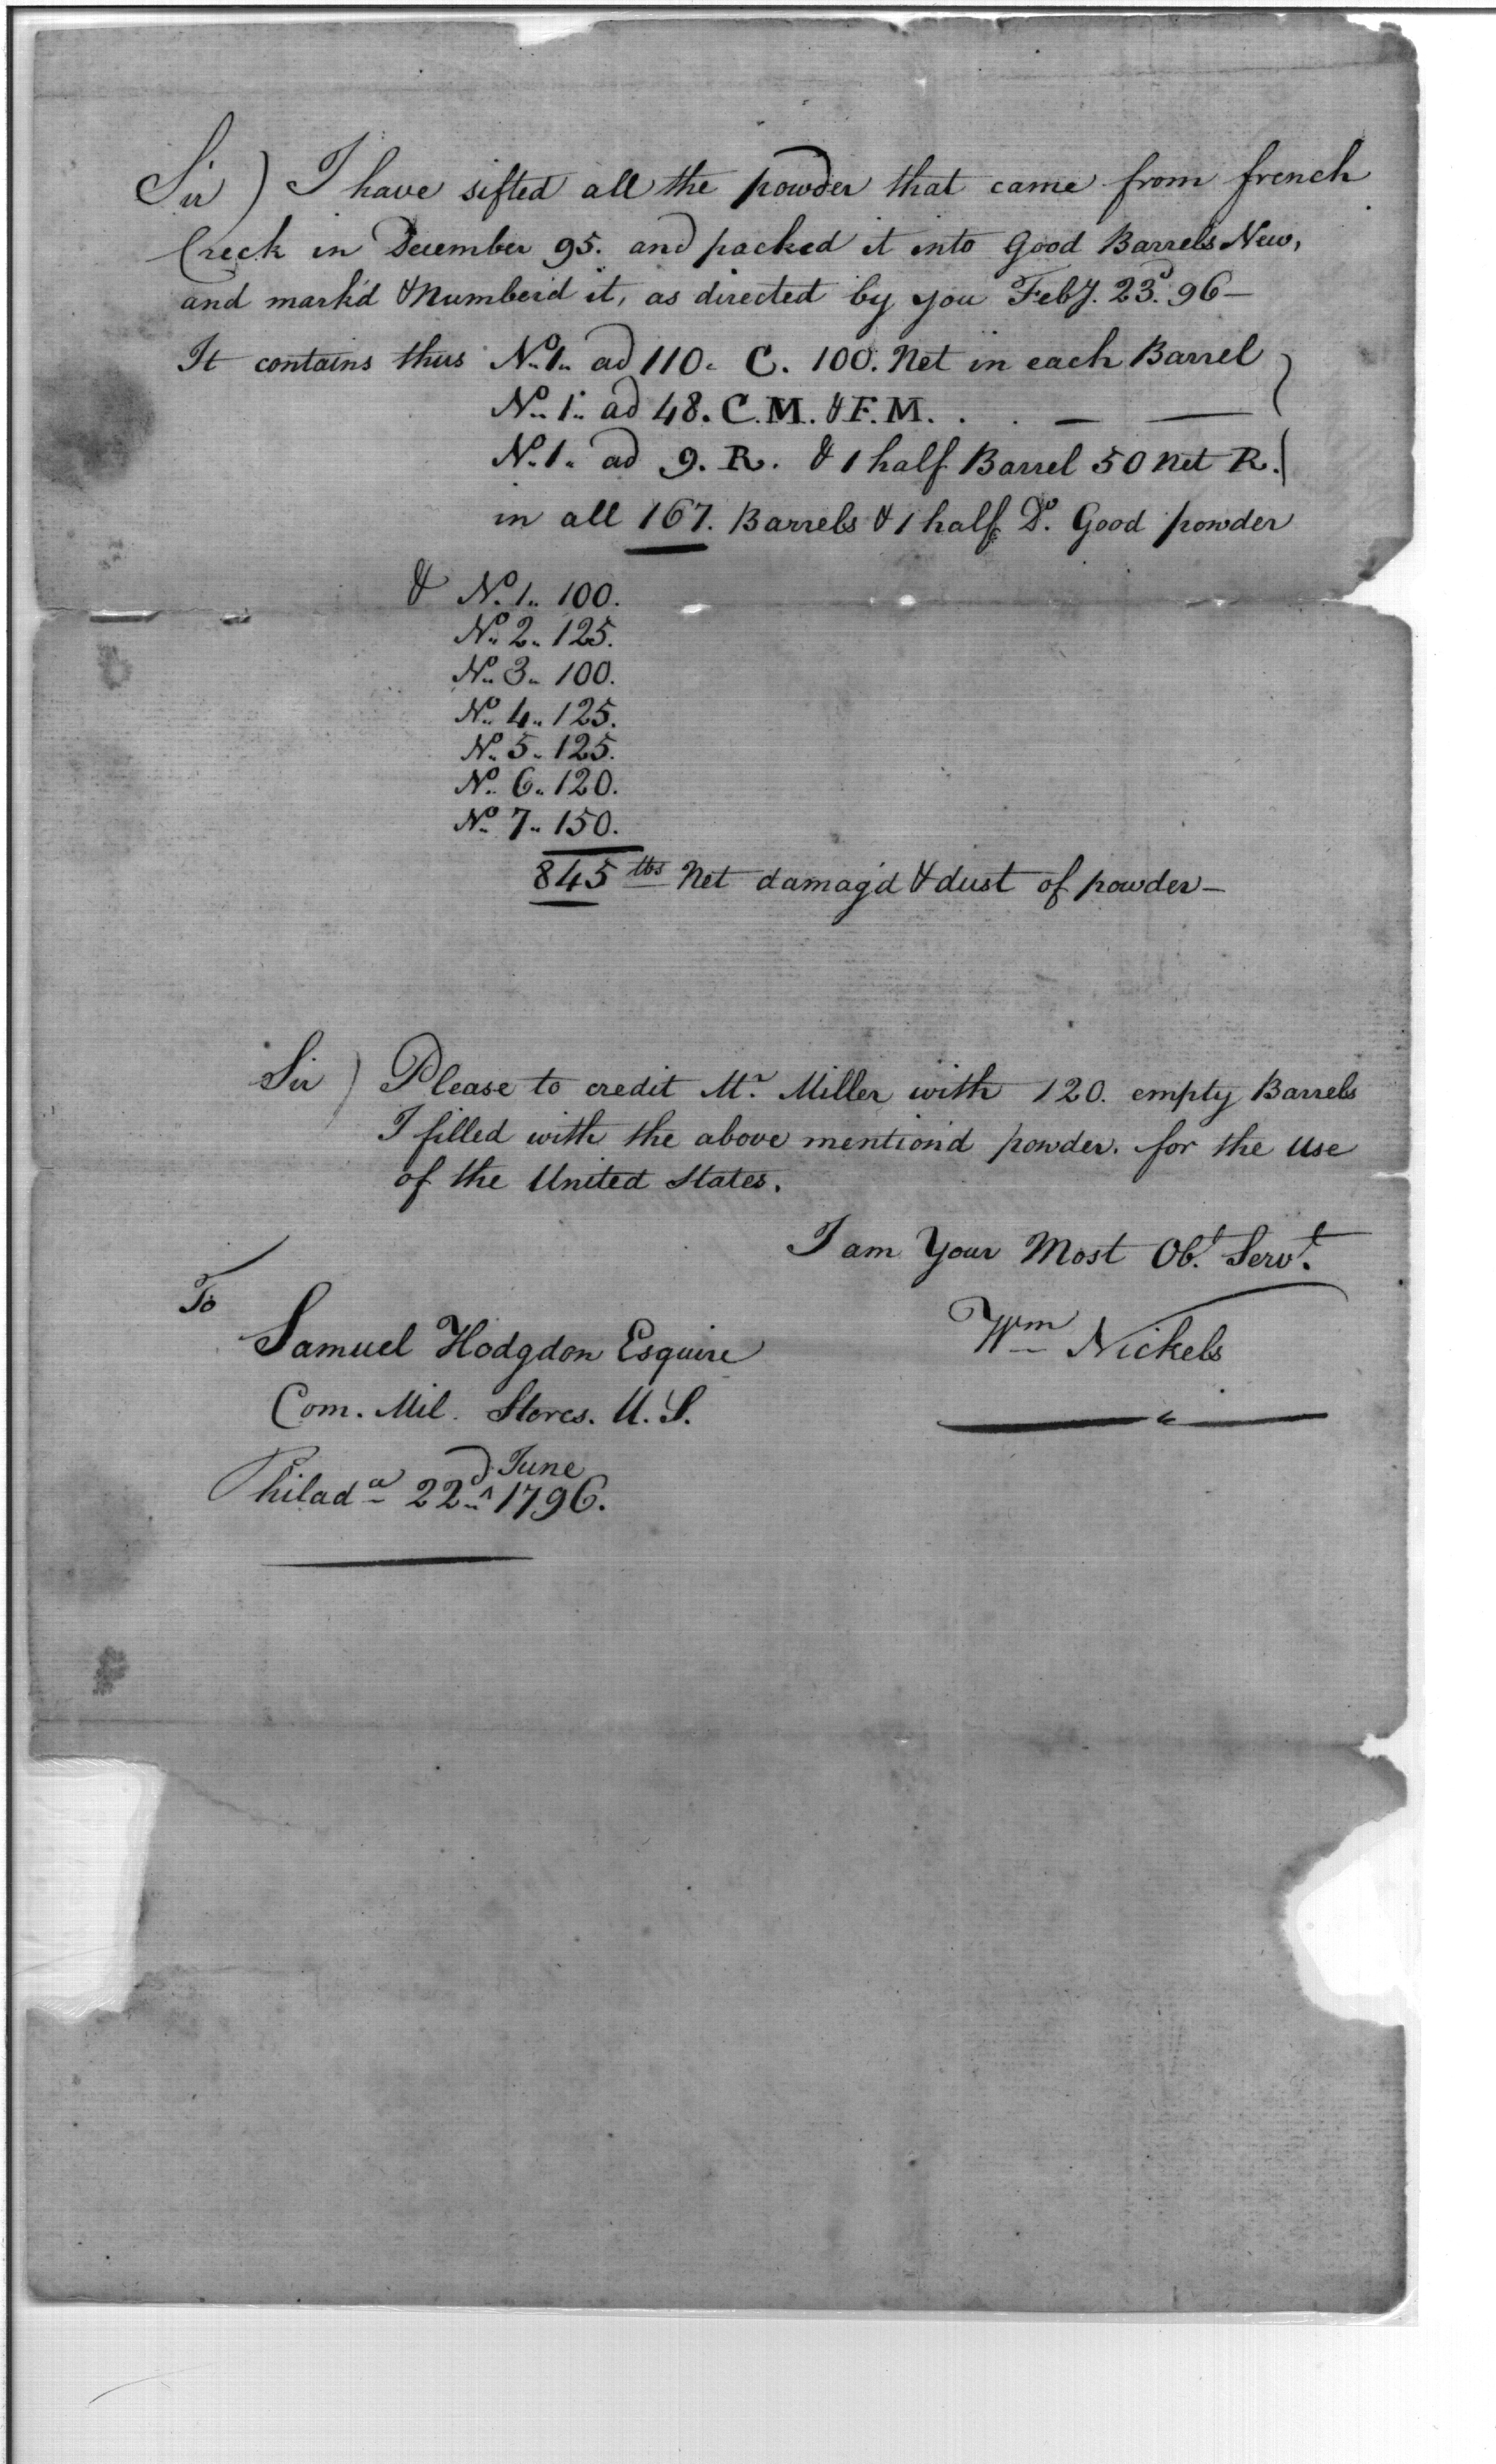 Sir) I have sifted all the powder that came from french
Creek in December 95. and packed it into Good Barrels New,
and mark'd & Number'd it, as directed by you Feby. 23d. 96 —
It contains thus No. 1.. ad 110. C. 100. Net in each Barrel }
No.. 1.. ad 48. C.M. & F.M. . . — —
No. 1.. ad 9. R. & 1 half Barrel 50 Net R.
in all 167. Barrels & 1 half Do. Good powder
& No. 1.. 100.
No.. 2.. 125.
No.. 3.. 100.
No.. 4.. 125.
No. 5.. 125.
No.. 6.. 120.
No.. 7.. 150.
845 lbs Net damag'd & dust of powder —
Sir) Please to credit Mr. Miller with 120. empty Barrels
I filled with the above mention'd powder. for the use
of the United States.
I am Your Most Obt. Servt.
To
Wm Nickels
Samuel Hodgdon Esquire
Com. Mil. Stores. U. S.
Philada 22d.. ^June 1796.